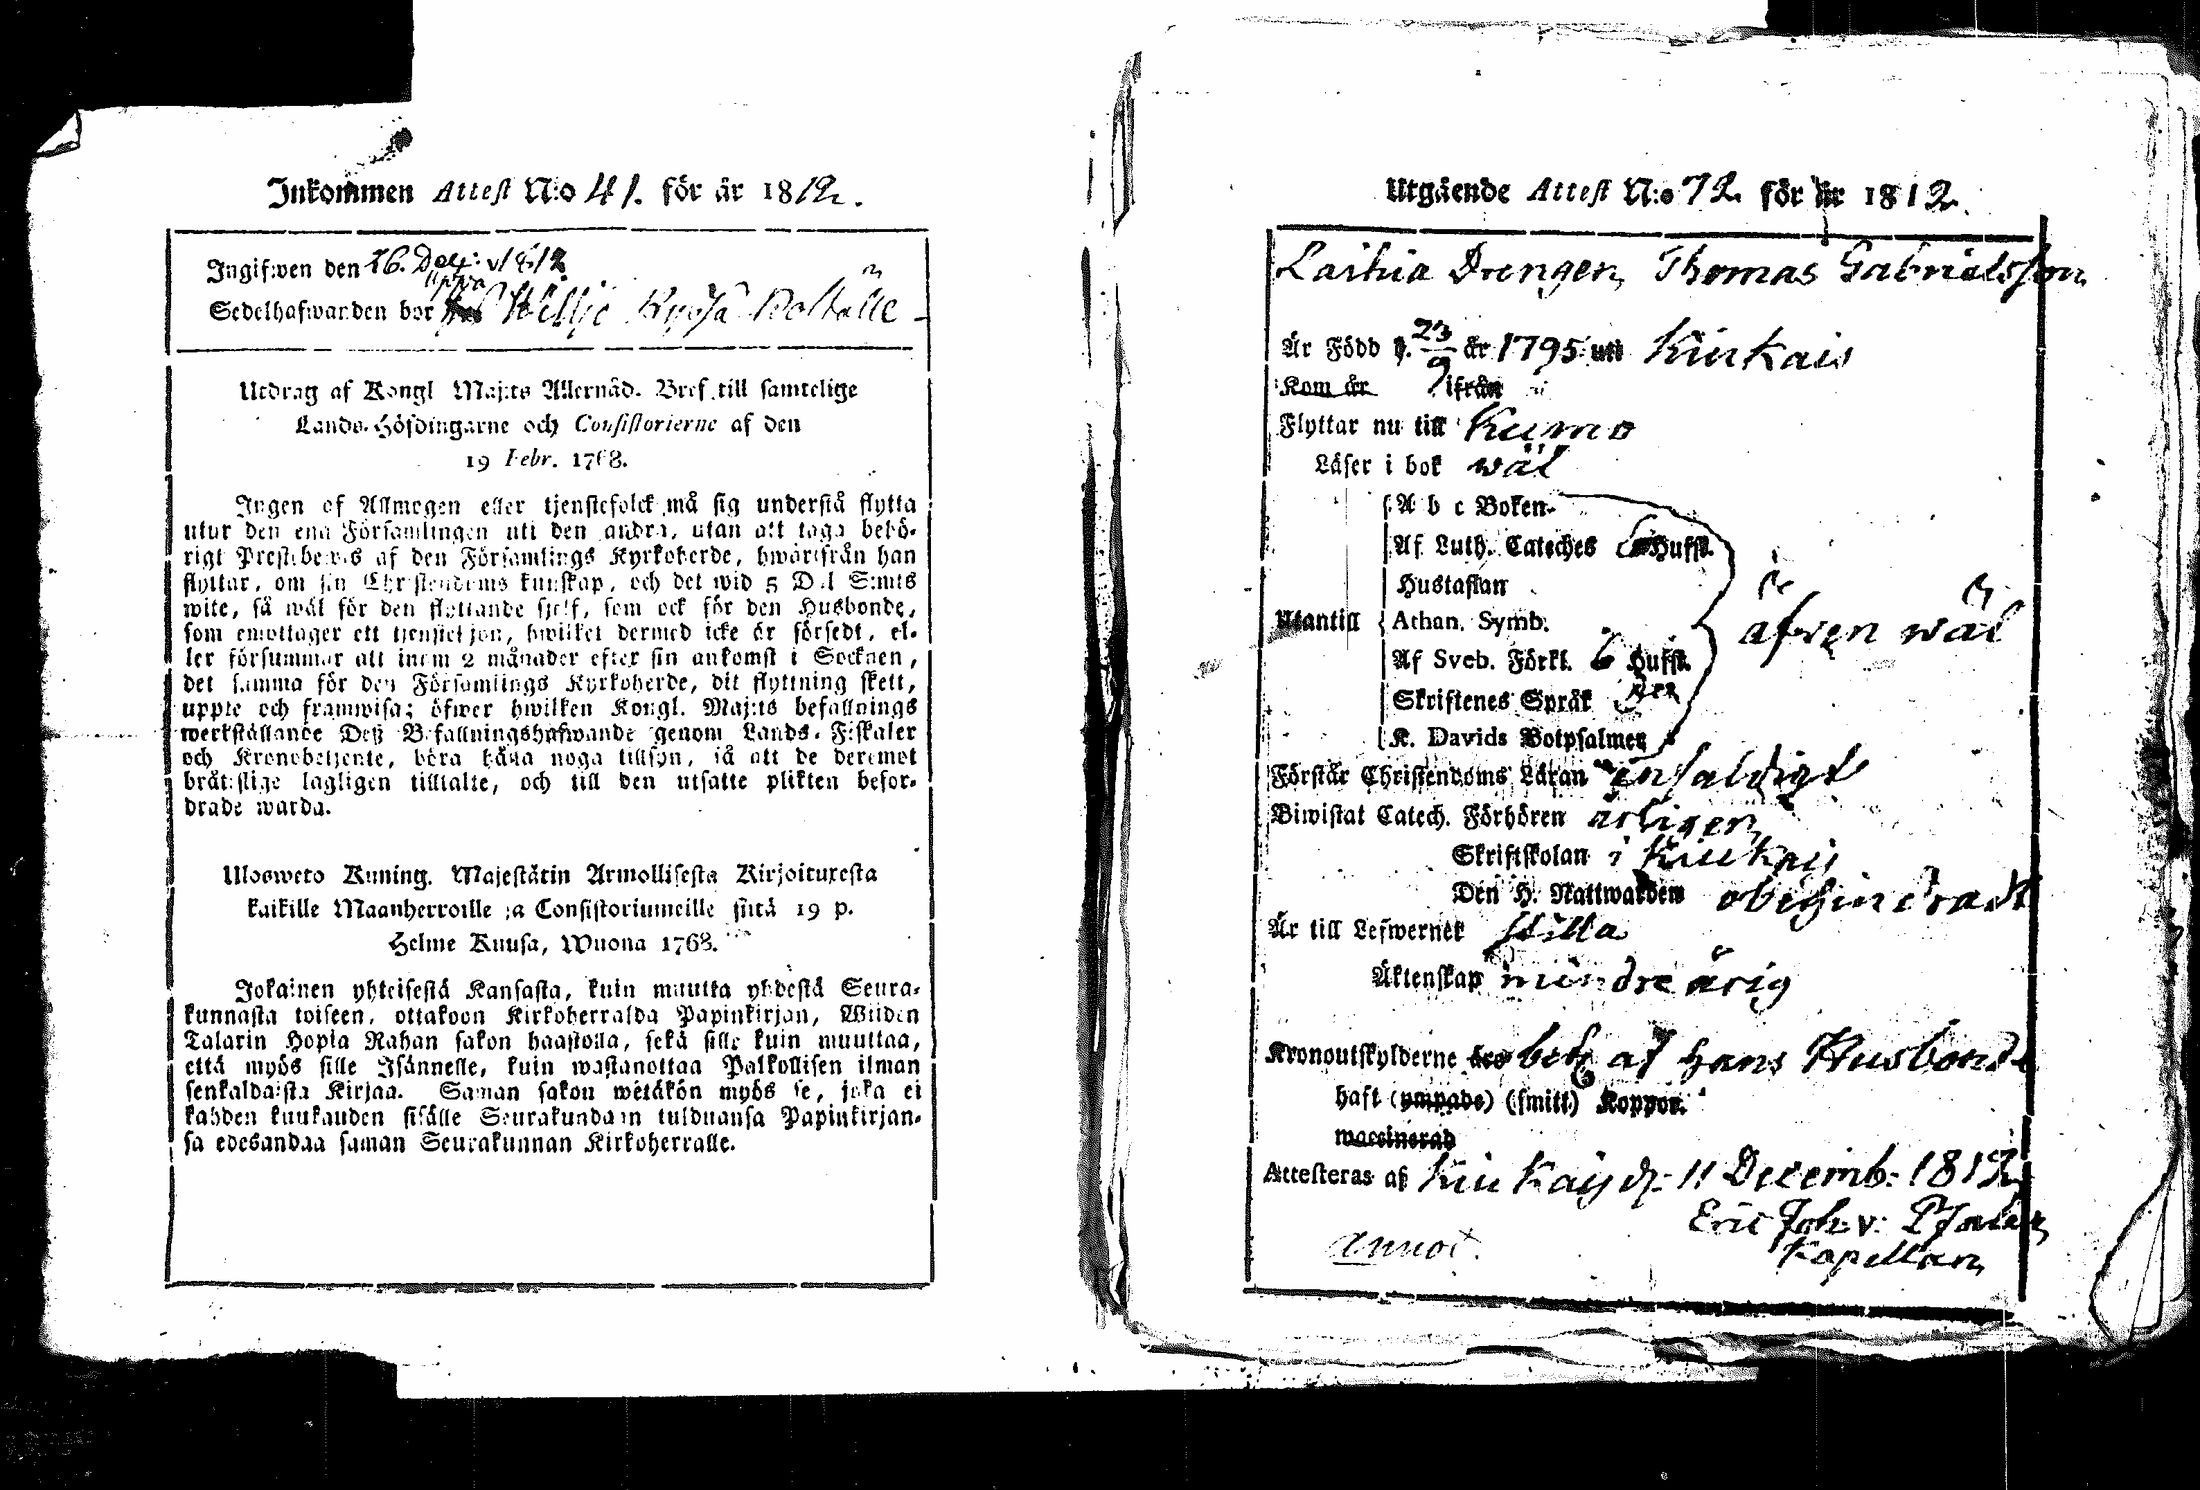 Inkommen Attest N:o 41. för år 1812.
Ingifwen den 26. Dec: 1812
uppå
Sedelhafwanden bor Willje Kyösä Bolställe
Utdrag af Kongl Maj:ts Allernåd. Bref till samtelige
Lands-Höfdingarne och Consistorierne af den
19 Febr. 1768.
Ingen af Allmogen eller tjenstefolck må sig understå flytta
utur den ena Församlingen uti den andra, utan att taga behö-
rigt Prestabewis af den Församlings Kyrkoherde, hwarifrån han
flyttar, om sin Christendoms kunskap, och det wid 5 Dal S:mts
wite, så wäl för den flyttande sjelf, som ock för den Husbonde,
som emottager ett tjenstehjon, hwilket dermed icke är försedt, el-
ler försummar att inom 2 månader efter sin ankomst i Socknen,
det samma för den Församlings Kyrkoherde, dit flyttning skett,
uppte och framwisa; öfwer hwilken Kongl. Maj:ts befallnings
werkställande Deß Befallningshafwande genom Lands-Fiskaler
och Kronobetjente, böra hålla noga tillsyn, så att de deremot
brätslige lagligen tilltalte, och till den utsatte plikten befor-
drade warda.
Ulosweto Kuning. Majestätin Armollisesta Kirjoituxesta
kaikille Maanherroille ja Consistoriumeille siitä 19 p.
Helme Kuusa, Wuona 1768.
Jokainen yhteisestä Kansasta, kuin muutta yhdestä Seura-
kunnasta toiseen, ottakoon Kirkoherralda Papinkirjan, Wiiden
Talarin Hopia Rahan sakon haastolla, sekä sille kuin muuttaa,
että myös sille Isännelle, kuin wastanottaa Palkollisen ilman
senkaldaista Kirjaa. Saman sakon wetäkön myös se, joka ei
kahden kuukauden sisälle Seurakundaan tulduansa Papinkirjan-
sa edesandaa saman Seurakunnan Kirkoherralle.
Utgående Attest N:o 72. för år 1812.
Laihia Drengen Thomas Gabrielsson
Är Född d. 23/9 år 1795 uti Kiukais
Kom år ifrån
Flyttar nu till Kumo
Läser i bok wäl
A b c Boken
Af Luth. Cateches Hufst.
Hustaflan
Utantill Athan. Symb. äfwen wäl
Af Sveb. Förkl. 6 Hufst.
Skriftenes Språk
K. Davids Botpsalmer
Förstår Christendoms Läran enfaldigt
Biwistat Catech. Förhören årligen
Skriftskolan i Kiukais
Den H. Nattwarden obehindradt
Är till Lefwernet stilla
Äktenskap mindre årig
Kronoutskylderne bet. af hans Husbonde
haft (ympade) (smitt) Koppor.
waccinerad
Attesteras af Kiukais d: 11 Decemb: 1812
Eric Joh: v: Pfaler
Kapellan
annot.